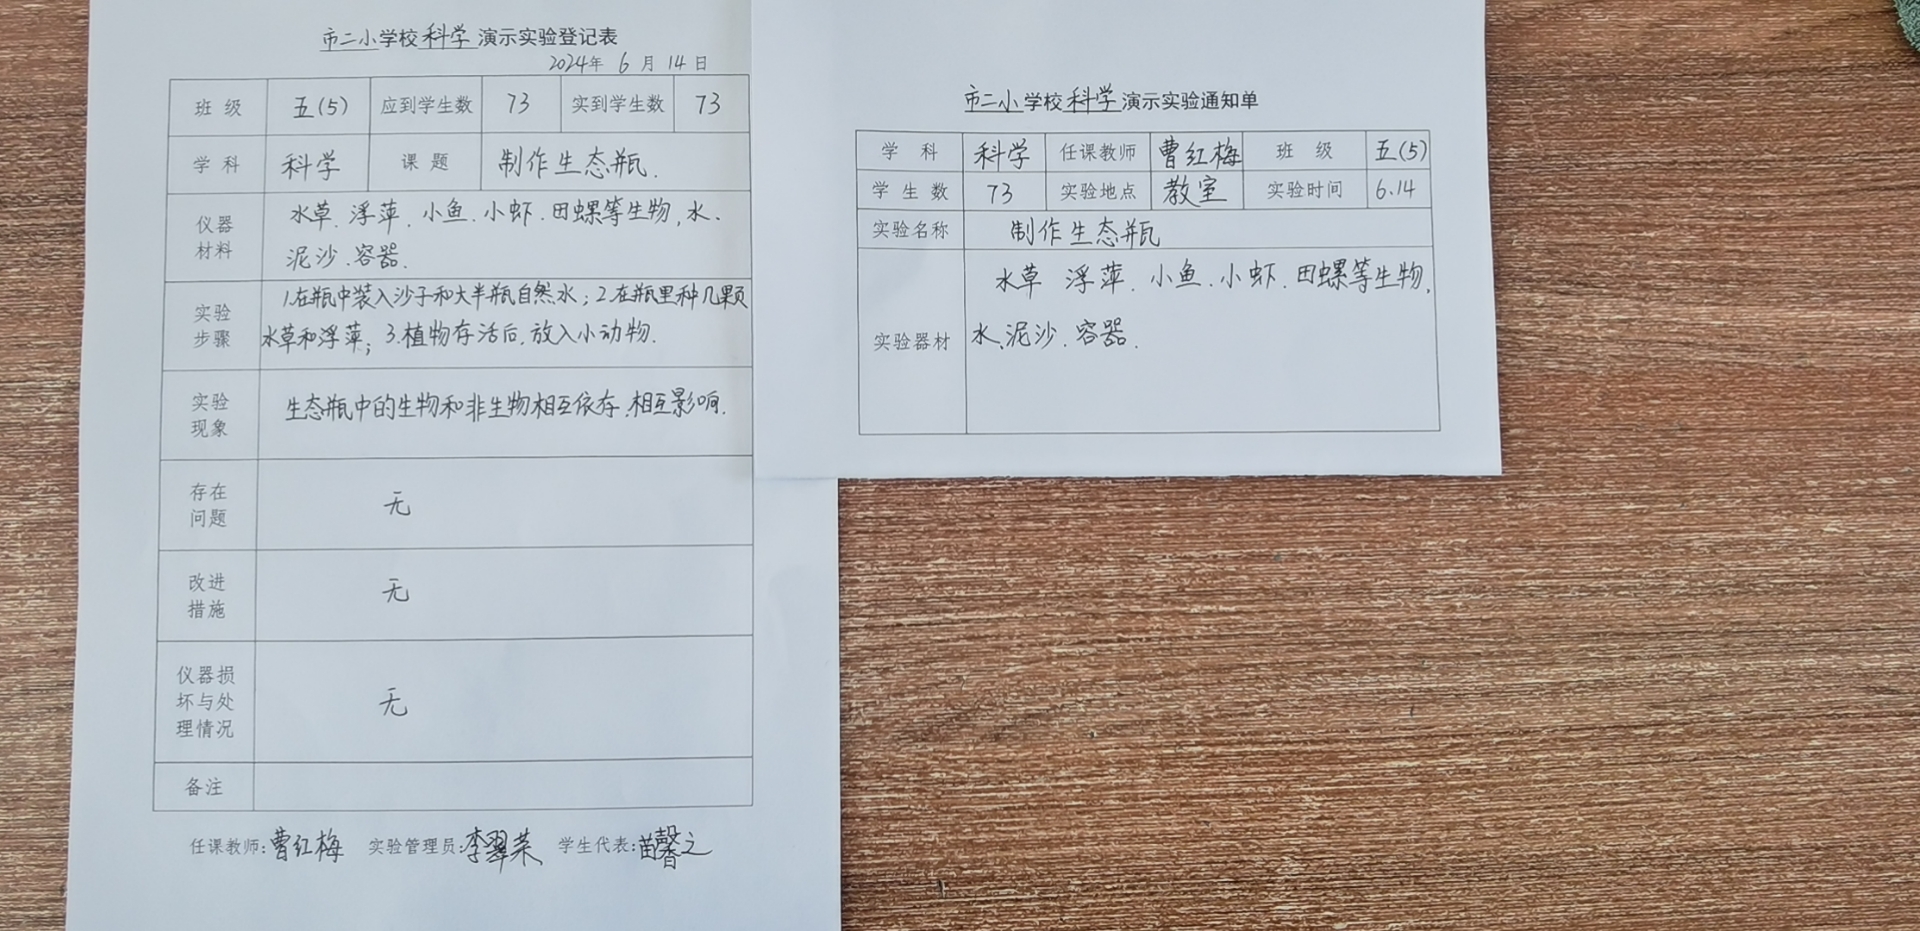 市二小学校科学演示实验登记表
2024年 6 月 14 日
班 级 五(5) 应到学生数 73 实到学生数 73
学 科 科学 课 题 制作生态瓶.
仪器
材料
水草.浮萍.小鱼.小虾.田螺等生物,水、
泥沙.容器.
实验
步骤
1.在瓶中装入沙子和大半瓶自然水;2.在瓶里种几颗
水草和浮萍;3.植物存活后,放入小动物.
实验
现象
生态瓶中的生物和非生物相互依存,相互影响.
存在
问题
无
改进
措施
无
仪器损
坏与处
理情况
无
备注
任课教师:曹红梅 实验管理员:李翠荣 学生代表:苗馨之
市二小学校科学演示实验通知单
学 科 科学 任课教师 曹红梅 班 级 五(5)
学 生 数 73 实验地点 教室 实验时间 6.14
实验名称 制作生态瓶
实验器材
水草 浮萍.小鱼.小虾.田螺等生物,
水、泥沙.容器.